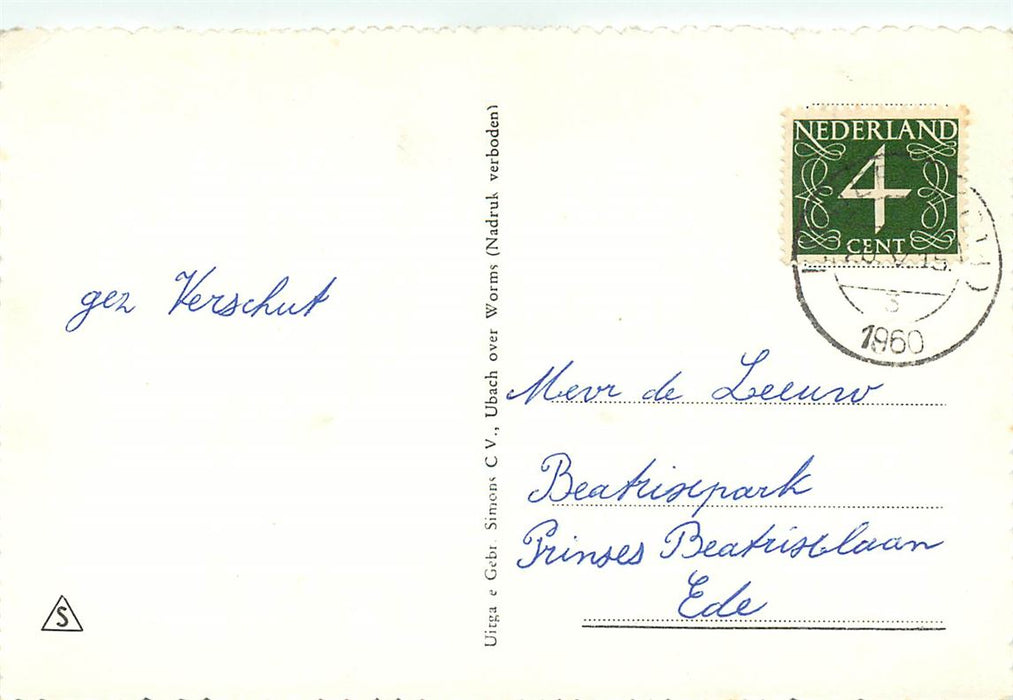 gez Verschut
Uitga e Gebr. Simons C V., Ubach over Worms (Nadruk verboden)
NEDERLAND
4
CENT
3
1960
Mevr de Leeuw
Beatrixpark
Prinses Beatrixlaan
Ede
S